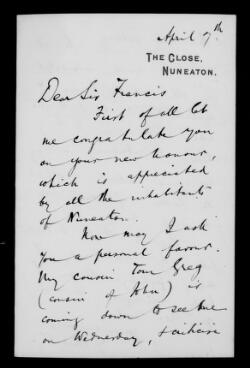 April 7th
THE CLOSE,
NUNEATON.
Dear Sir Francis
First of all let
me congratulate you
on your new honour,
which is appreciated
by all the inhabitants
of Nuneaton.
Now may I ask
you a personal favour.
My cousin Tom Greg
(cousin of John) is
coming down to see me
on Wednesday, &